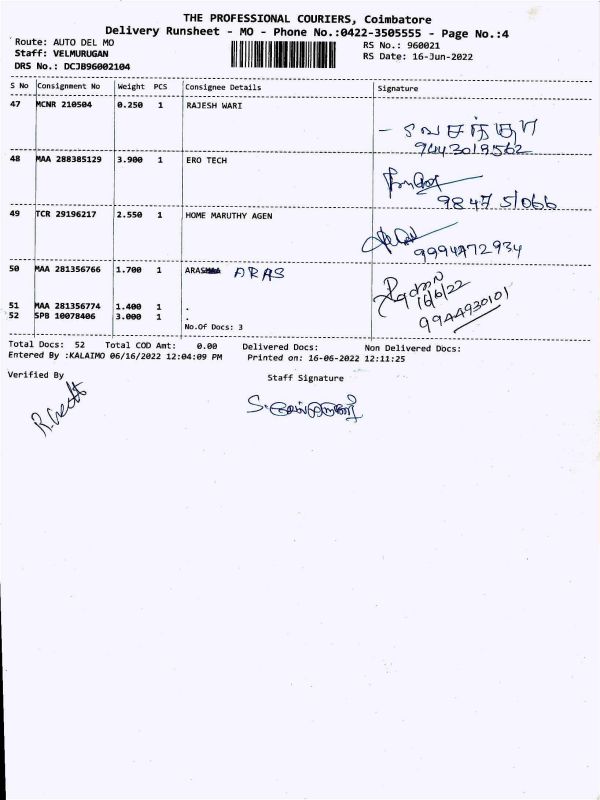 THE PROFESSIONAL COURIERS, Coimbatore
Delivery Runsheet - MO - Phone No.:0422-3505555 - Page No.:4
Route: AUTO DEL MO
RS No.: 960021
Staff: VELMURUGAN
RS Date: 16-Jun-2022
DRS No.: DCJB96002104
S No Consignment No Weight PCS Consignee Details Signature
47 MCNR 210504 0.250 1 RAJESH WARI
9443019562
48 MAA 288385129 3.900 1 ERO TECH
98475 51066
49 TCR 29196217 2.550 1 HOME MARUTHY AGEN
9994972934
50 MAA 281356766 1.700 1 ARAS ARAS
16/6/22
9944930101
51 MAA 281356774 1.400 1 .
52 SPB 10078406 3.000 1 .
No.Of Docs: 3
Total Docs: 52 Total COD Amt: 0.00 Delivered Docs: Non Delivered Docs:
Entered By :KALAIMO 06/16/2022 12:04:09 PM Printed on: 16-06-2022 12:11:25
Verified By
Staff Signature